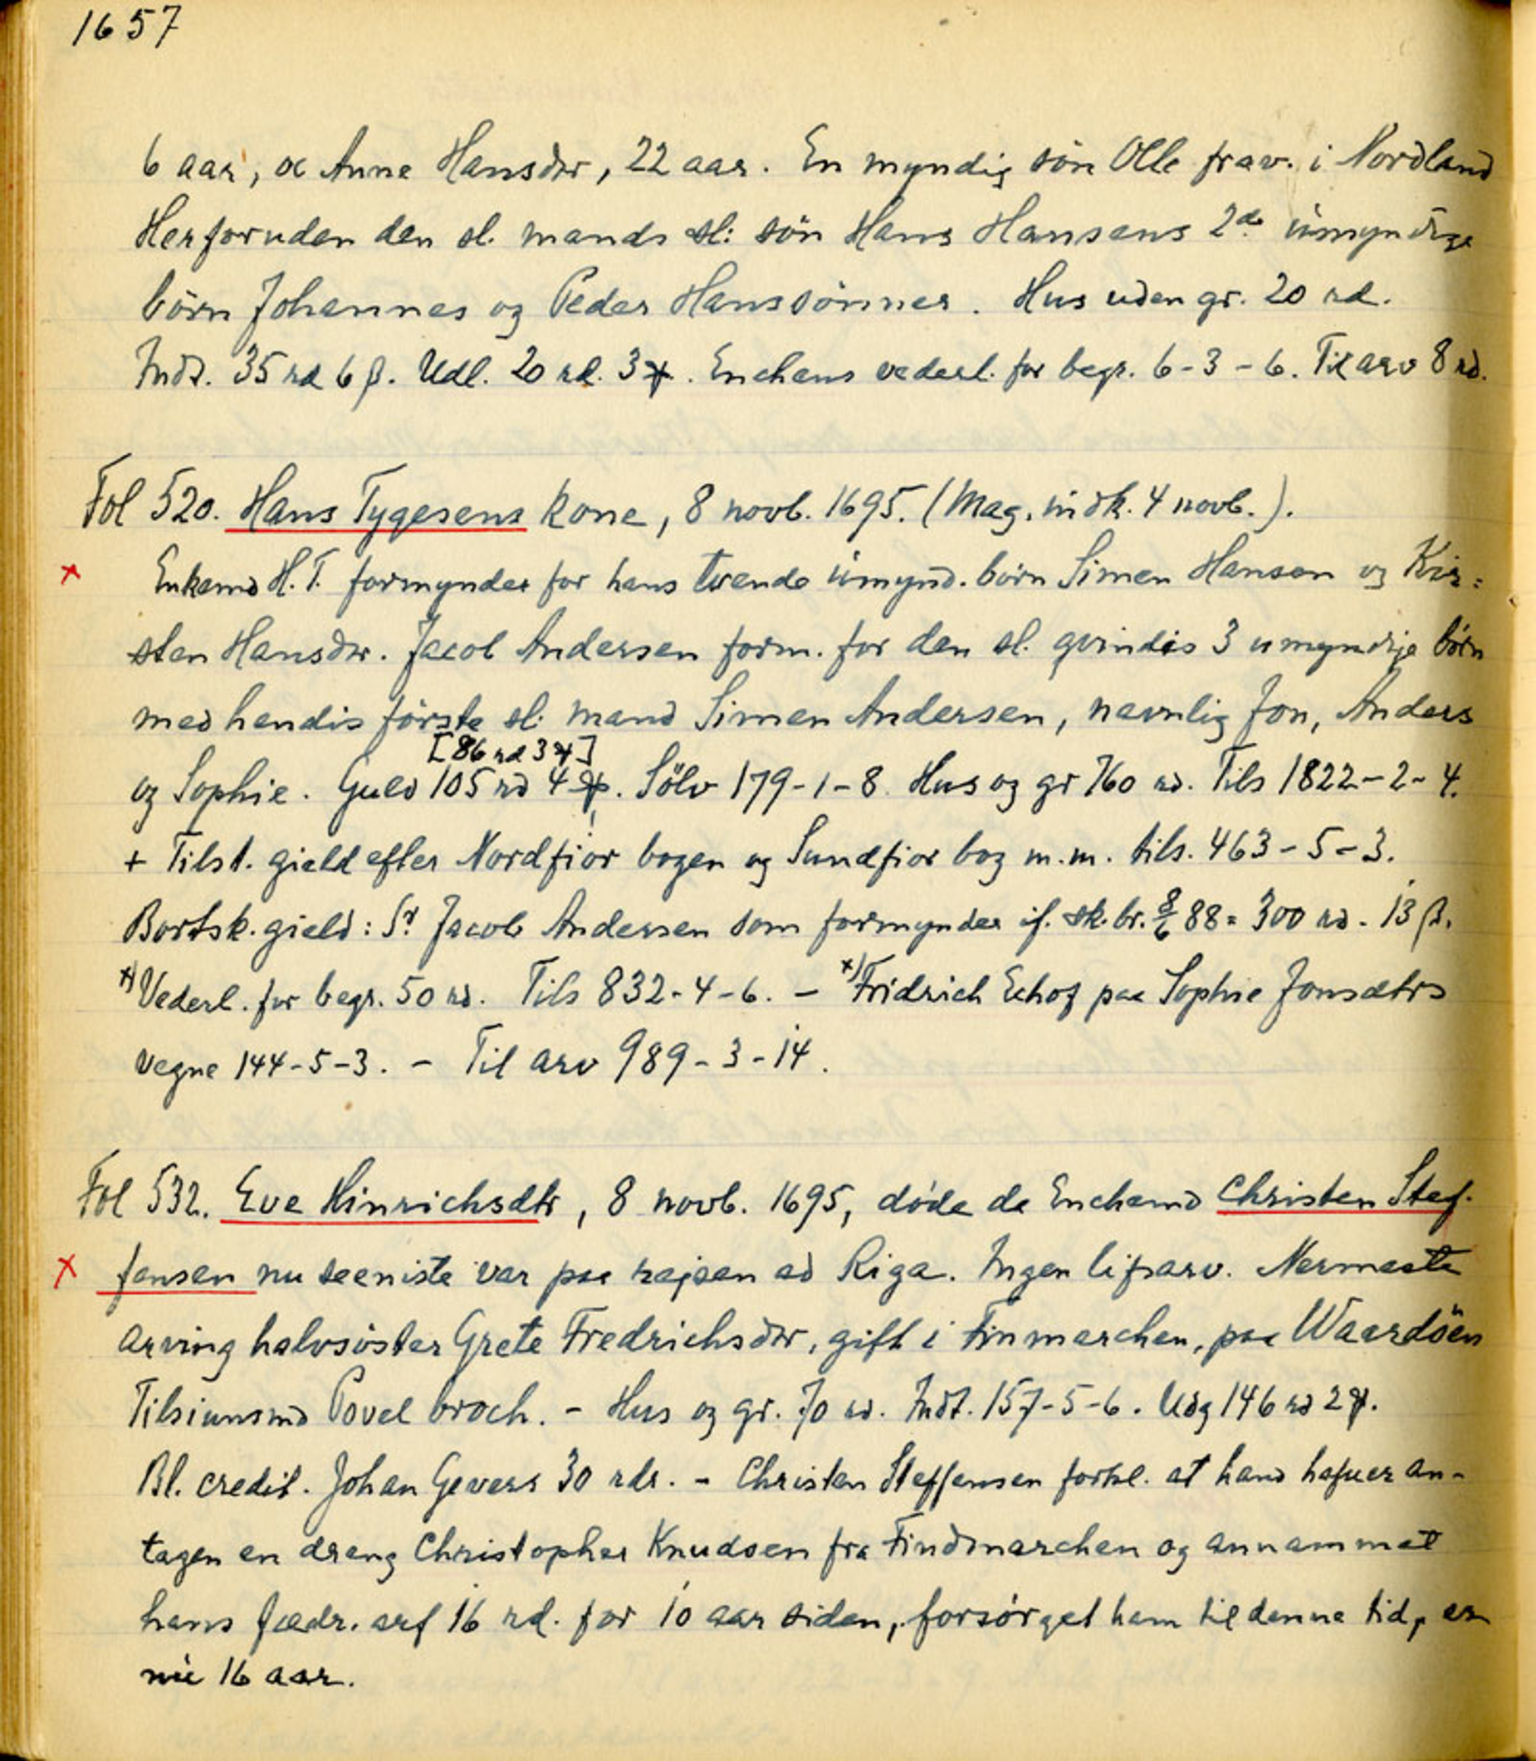 1657
6 aar, oc Anne Hansdtr, 22 aar. En myndig søn Olle frav. i Nordland
Herforuden den sl. mands sl: søn Hans Hansens 2de ùmyndige
børn Johannes og Peder Hanssønner. Hus uden gr. 20 rd.
Indt. 35 rd 6 β. Udl. 20 rd. 3 ♃. Enchens vederl. for begr. 6-3-6. Til arv 8 rd.
Fol 520. Hans Tygesens kone, 8 novb. 1695. (Mag. indk. 4 novb.).
x Enkemd H. T. formynder for hans tvende ùmynd. børn Simen Hansen og Kir=
sten Hansdtr. Jacob Andersen form. for den sl. qvindis 3 umyndige børn
med hendis første sl: mand Simen Andersen, navnlig Jon, Anders
[86 rd 3 ♃]
og Sophie. Guld 105 rd 4 ♃. Sölv 179-1-8. Hus og gr 760 rd. Tils 1822-2-4.
+ Tilst. gield efter Nordfiör bogen og Sundfior bog m.m. tils. 463-5-3.
Bortsk. gield: Sr Jacob Andersen som formynder if. sk. br. 8/6 88 = 300 rd. 13 β.
x) Vederl. for begr. 50 rd. Tils 832-4-6. - x) Fridrich Echof paa Sophie Jonsdtrs
vegne 144-5-3. - Til arv 989-3-14.
Fol 532. Eve Hinrichsdtr, 8 novb. 1695, døde da Enchemd Christen Stef-
x fensen nu seeniste var paa rejsen ad Riga. Ingen lifsarv. Nermeste
arving halvsøster Grete Fredrichsdtr, gift i Finmarchen, paa Waardöen
Tilsiunsmd Povel broch. - Hus og gr. 70 rd. Indt. 157-5-6. Udg 146 rd 2 ♃.
Bl. credit. Johan Gevers 30 rdr. - Christen Steffensen forkl. at hand hafuer an-
tagen en dreng Christopher Knudsen fra Findmarchen og annammet
hans fædr. arf 16 rd. for 10 aar siden, forsørget ham til denne tid, er
nù 16 aar.